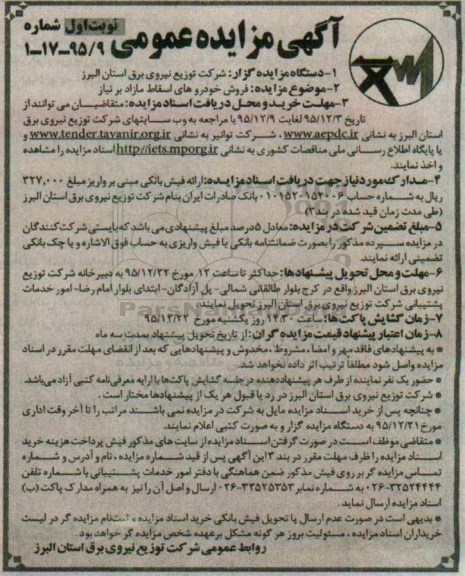 آگهی مزایده عمومی نوبت اول شماره
۱-۱۷-۹۵/۹
۱-دستگاه مزایده گزار: شرکت توزیع نیروی برق استان البرز
۲-موضوع مزایده: فروش خودرو های اسقاط مازاد بر نیاز
۳-مهلت خرید و محل دریافت اسناد مزایده: متقاضیان می توانند از
تاریخ ۹۵/۱۲/۳ لغایت ۹۵/۱۲/۹ با مراجعه به وب سایتهای شرکت توزیع نیروی برق
استان البرز به نشانی www.aepdc.ir، شرکت توانیر به نشانی www.tender.tavanir.org.ir و
یا پایگاه اطلاع رسانی ملی مناقصات کشوری به نشانی http://iets.mporg.ir اسناد مزایده را مشاهده
و اخذ نمایند.
۴-مدارک مورد نیاز جهت دریافت اسناد مزایده: ارائه فیش بانکی مبنی بر واریز مبلغ ۳۲۷,۰۰۰
ریال به شماره حساب بانک صادرات ایران بنام شرکت توزیع نیروی برق استان البرز
(طی مدت زمان قید شده در بند ۳)
۵-مبلغ تضمین شرکت در مزایده: معادل ۵درصد مبلغ پیشنهادی می باشد که بایستی شرکت کنندگان
در مزایده سپرده مذکور را بصورت ضمانتنامه بانکی یا فیش واریزی به حساب فوق الاشاره و یا چک بانکی
تضمینی ارائه نمایند.
۶-مهلت و محل تحویل پیشنهادها: حداکثر تا ساعت ۱۲ مورخ ۹۵/۱۲/۲۲ به دبیرخانه شرکت توزیع
نیروی برق استان البرز واقع در کرج بلوار طالقانی شمالی- پل آزادگان- ابتدای بلوار امام رضا- امور خدمات
پشتیبانی شرکت توزیع نیروی برق استان البرز تحویل نمایند.
۷-زمان گشایش پاکت ها: ساعت ۱۴:۳۰ روز یکشنبه مورخ ۹۵/۱۲/۲۲
۸-زمان اعتبار پیشنهاد قیمت مزایده گران: از تاریخ تحویل پیشنهاد بمدت سه ماه
* به پیشنهادهای فاقد مهر و امضاء، مشروط، مخدوش و پیشنهادهایی که بعد از انقضای مهلت مقرر در اسناد
مزایده واصل شود مطلقاً ترتیب اثر داده نخواهد شد.
* حضور یک نفر نماینده از طرف هر پیشنهاددهنده در جلسه گشایش پاکت ها با ارایه معرفی نامه کتبی آزاد می باشد.
* شرکت توزیع نیروی برق استان البرز در رد یا قبول هر یک از پیشنهادها مختار است.
* چنانچه پس از خرید اسناد مزایده مایل به شرکت در مزایده نمی باشند مراتب را تا آخر وقت اداری
مورخ ۹۵/۱۲/۲۱ به دستگاه مزایده گزار و به صورت کتبی اعلام نمایند.
* متقاضی موظف است در صورت گرفتن اسناد مزایده از سایت های مذکور فیش پرداخت هزینه خرید
اسناد مزایده را ظرف مهلت مقرر در بند ۳ این آگهی پس از قید شماره مزایده، نام و آدرس و شماره
تماس مزایده گر بر روی فیش مذکور ضمن هماهنگی با دفتر امور خدمات پشتیبانی با شماره تلفن
۰۲۶-۳۳۵۲۴۴۴۴ به شماره نمابر ۰۲۶-۳۳۵۲۵۳۵۳ ارسال و اصل آن را نیز به همراه مدارک پاکت (ب)
اسناد مزایده ارسال نماید.
* بدیهی است در صورت عدم ارسال یا تحویل فیش بانکی خرید اسناد مزایده و ثبت نام مزایده گر در لیست
خریداران اسناد مزایده، مسئولیت بروز هر گونه مشکل برعهده شخص مزایده گر خواهد بود.
روابط عمومی شرکت توزیع نیروی برق استان البرز